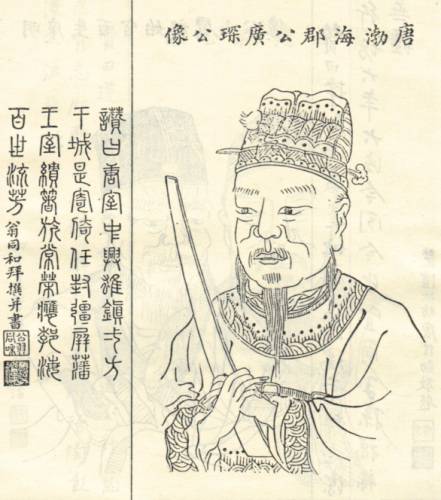 唐渤海郡公廣琛公像
讚曰唐室中興雄鎮方
干城是倚任封疆屏藩
王室績著旂常榮膺海
百世流芳 翁同和拜撰并書